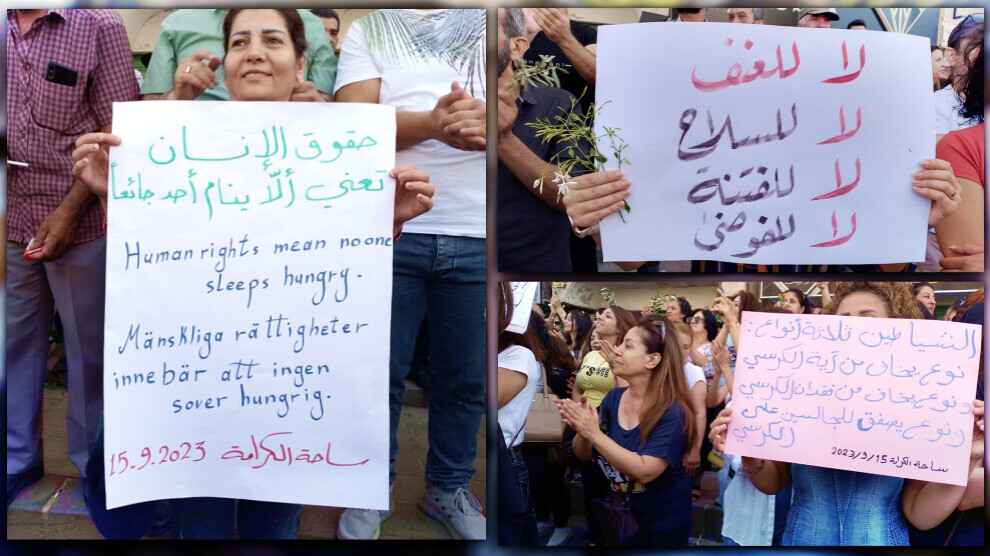 حقوق الإنسان
تعني ألّا ينام أحد جائعاً
Human rights mean no one
sleeps hungry.
Mänskliga rättigheter
innebär att ingen
sover hungrig.
15.9.2023 ساحة الكرامة
لا للعنف
لا للسلاح
لا للفتنة
لا للفوضى
الشياطين ثلاثة أنواع:
نوع يخاف من آية الكرسي
ونوع يخاف من فقدان الكرسي
ونوع يصفق للجالسين على
الكرسي
ساحة الكرامة 2023/9/15